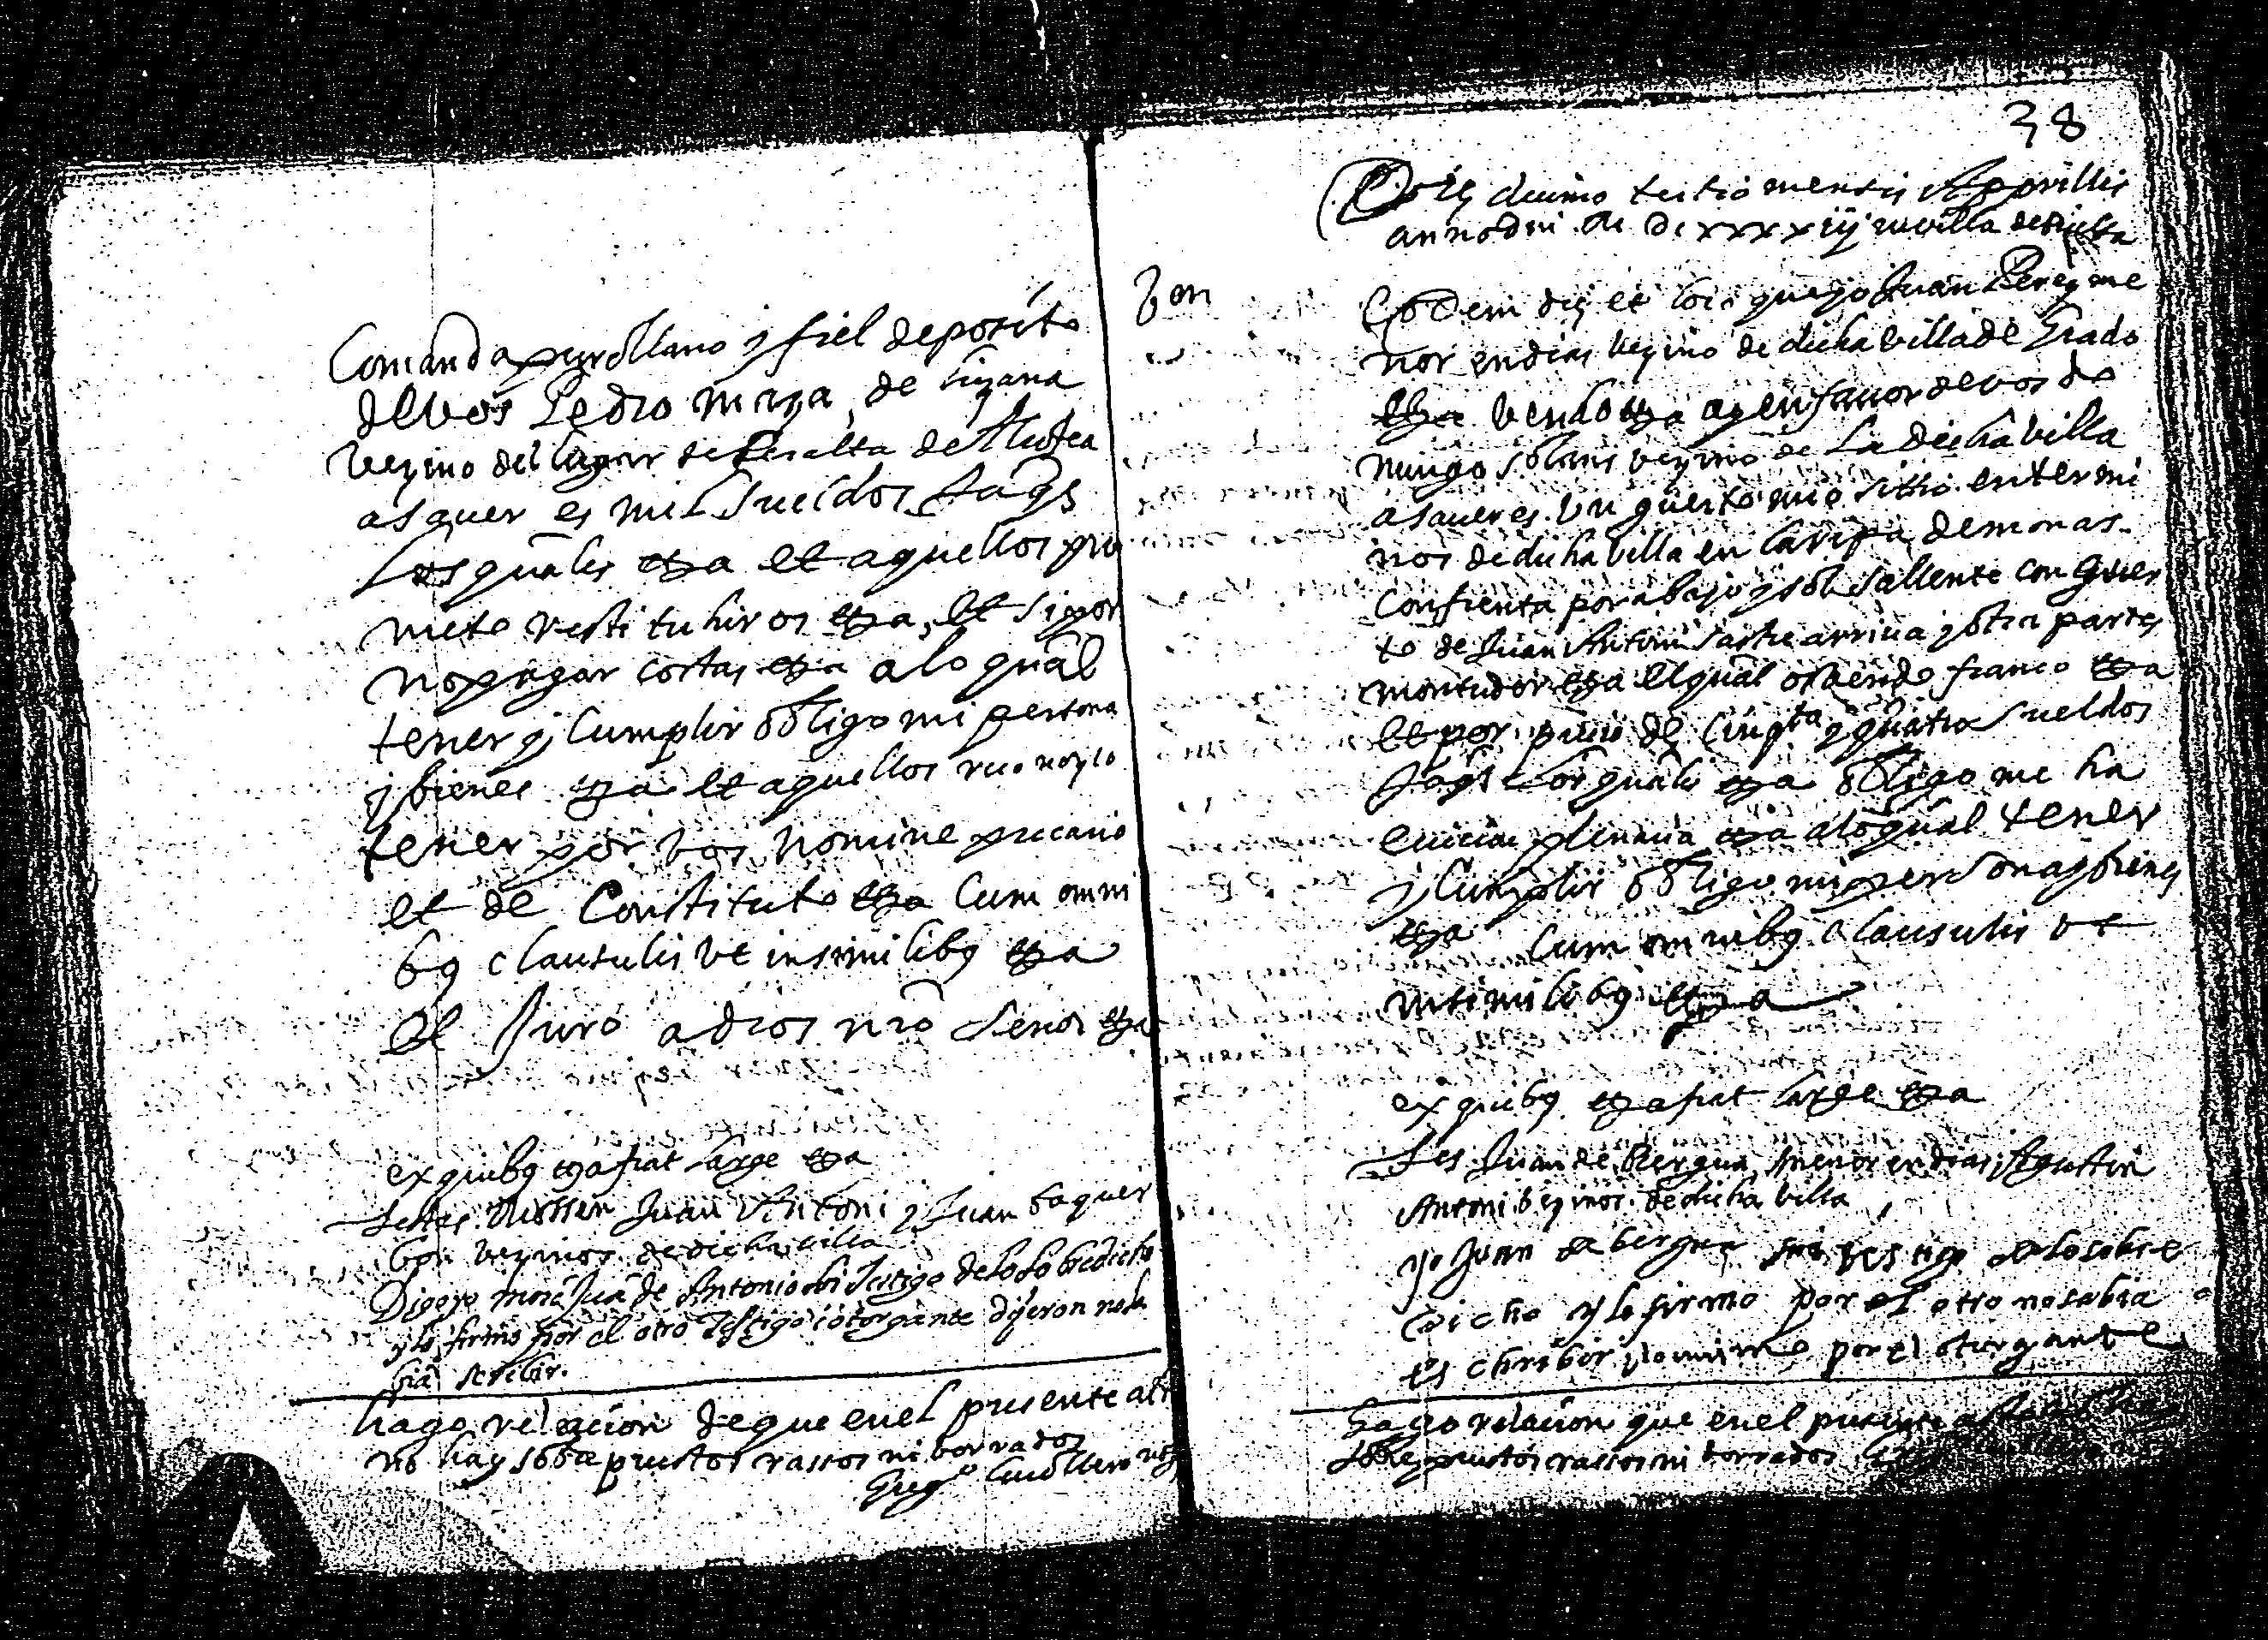 Comanda puro llano y fiel deposito
de vos Pedro maza de lizana
vezino del lugar de Peralta de
a saver es mil sueldos Jaqs
Los quales etza et aquellos pro
meto restituhir os etza, et si por
no pagar costas etza a lo qual
tener y cumplir obligo mi persona
y bienes etza et aquellos reconozco
tener por vos nomine precario
et de Constituto etza Cum omni
bq clausulis ut in similibq etza
et Juro a dios nro senor etza
ex quibq etza fiat large etza
Testes Mossen Juan Antoni y Juan baquer
vezinos de dicha villa
Digo yo mosé Juã de Antoni soi Testigo de lo sobredicho
y lo firmo por el otro Testigo i otorgante dijeron no sa
bian scribir.
hago relacion de que en el presente act
no hay sobrepuestos rassos ni borrados
Gregº not
38
Die decimo tertio mensis Apprillis
anno dni M DC xxxxiij in villa de
Eodem die et loco que yo Juan Perez me
nor en dias vezino de dicha villa de Grado
etza vendo etza a y en favor de vos do
mingo solans vezino de La dicha villa
a saver es un guerto mio sittio en termi
nos de dicha villa en la ripa de monas
Confrenta por abajo y sol sallente con guer
to de Juan Antoni sastre arriva y otra partes
montudor etza el qual os vendo franco etza
et por precio de cinqta y quatro sueldos
Jaqs Los quales etza obligo me ha
eviction plenaria etza a lo qual tener
y Cumplir obligo mi persona y bienes
etza Cum omnibq clausulis ut
in similibq etza
ex quibq etza fiat large etza
Tes Juan de Bergua menor en dias Agustin
Antoni vezinos de dicha villa
yo Juan de bergua soi testigo de lo sobre
dicho y lo firmo por el otro no sabia
eschribir i lo mismo por el otorgante
hago relacion que en el presente
sobrepuestos rassos ni borrados